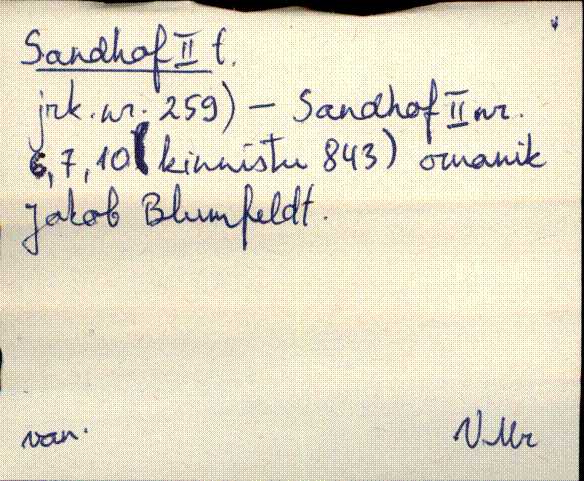 Sandhof II t.
jrk. nr. 259) – Sandhof II nr.
6, 7, 10 (kinnistu 843) omanik
Jakob Blumfeldt.
van.